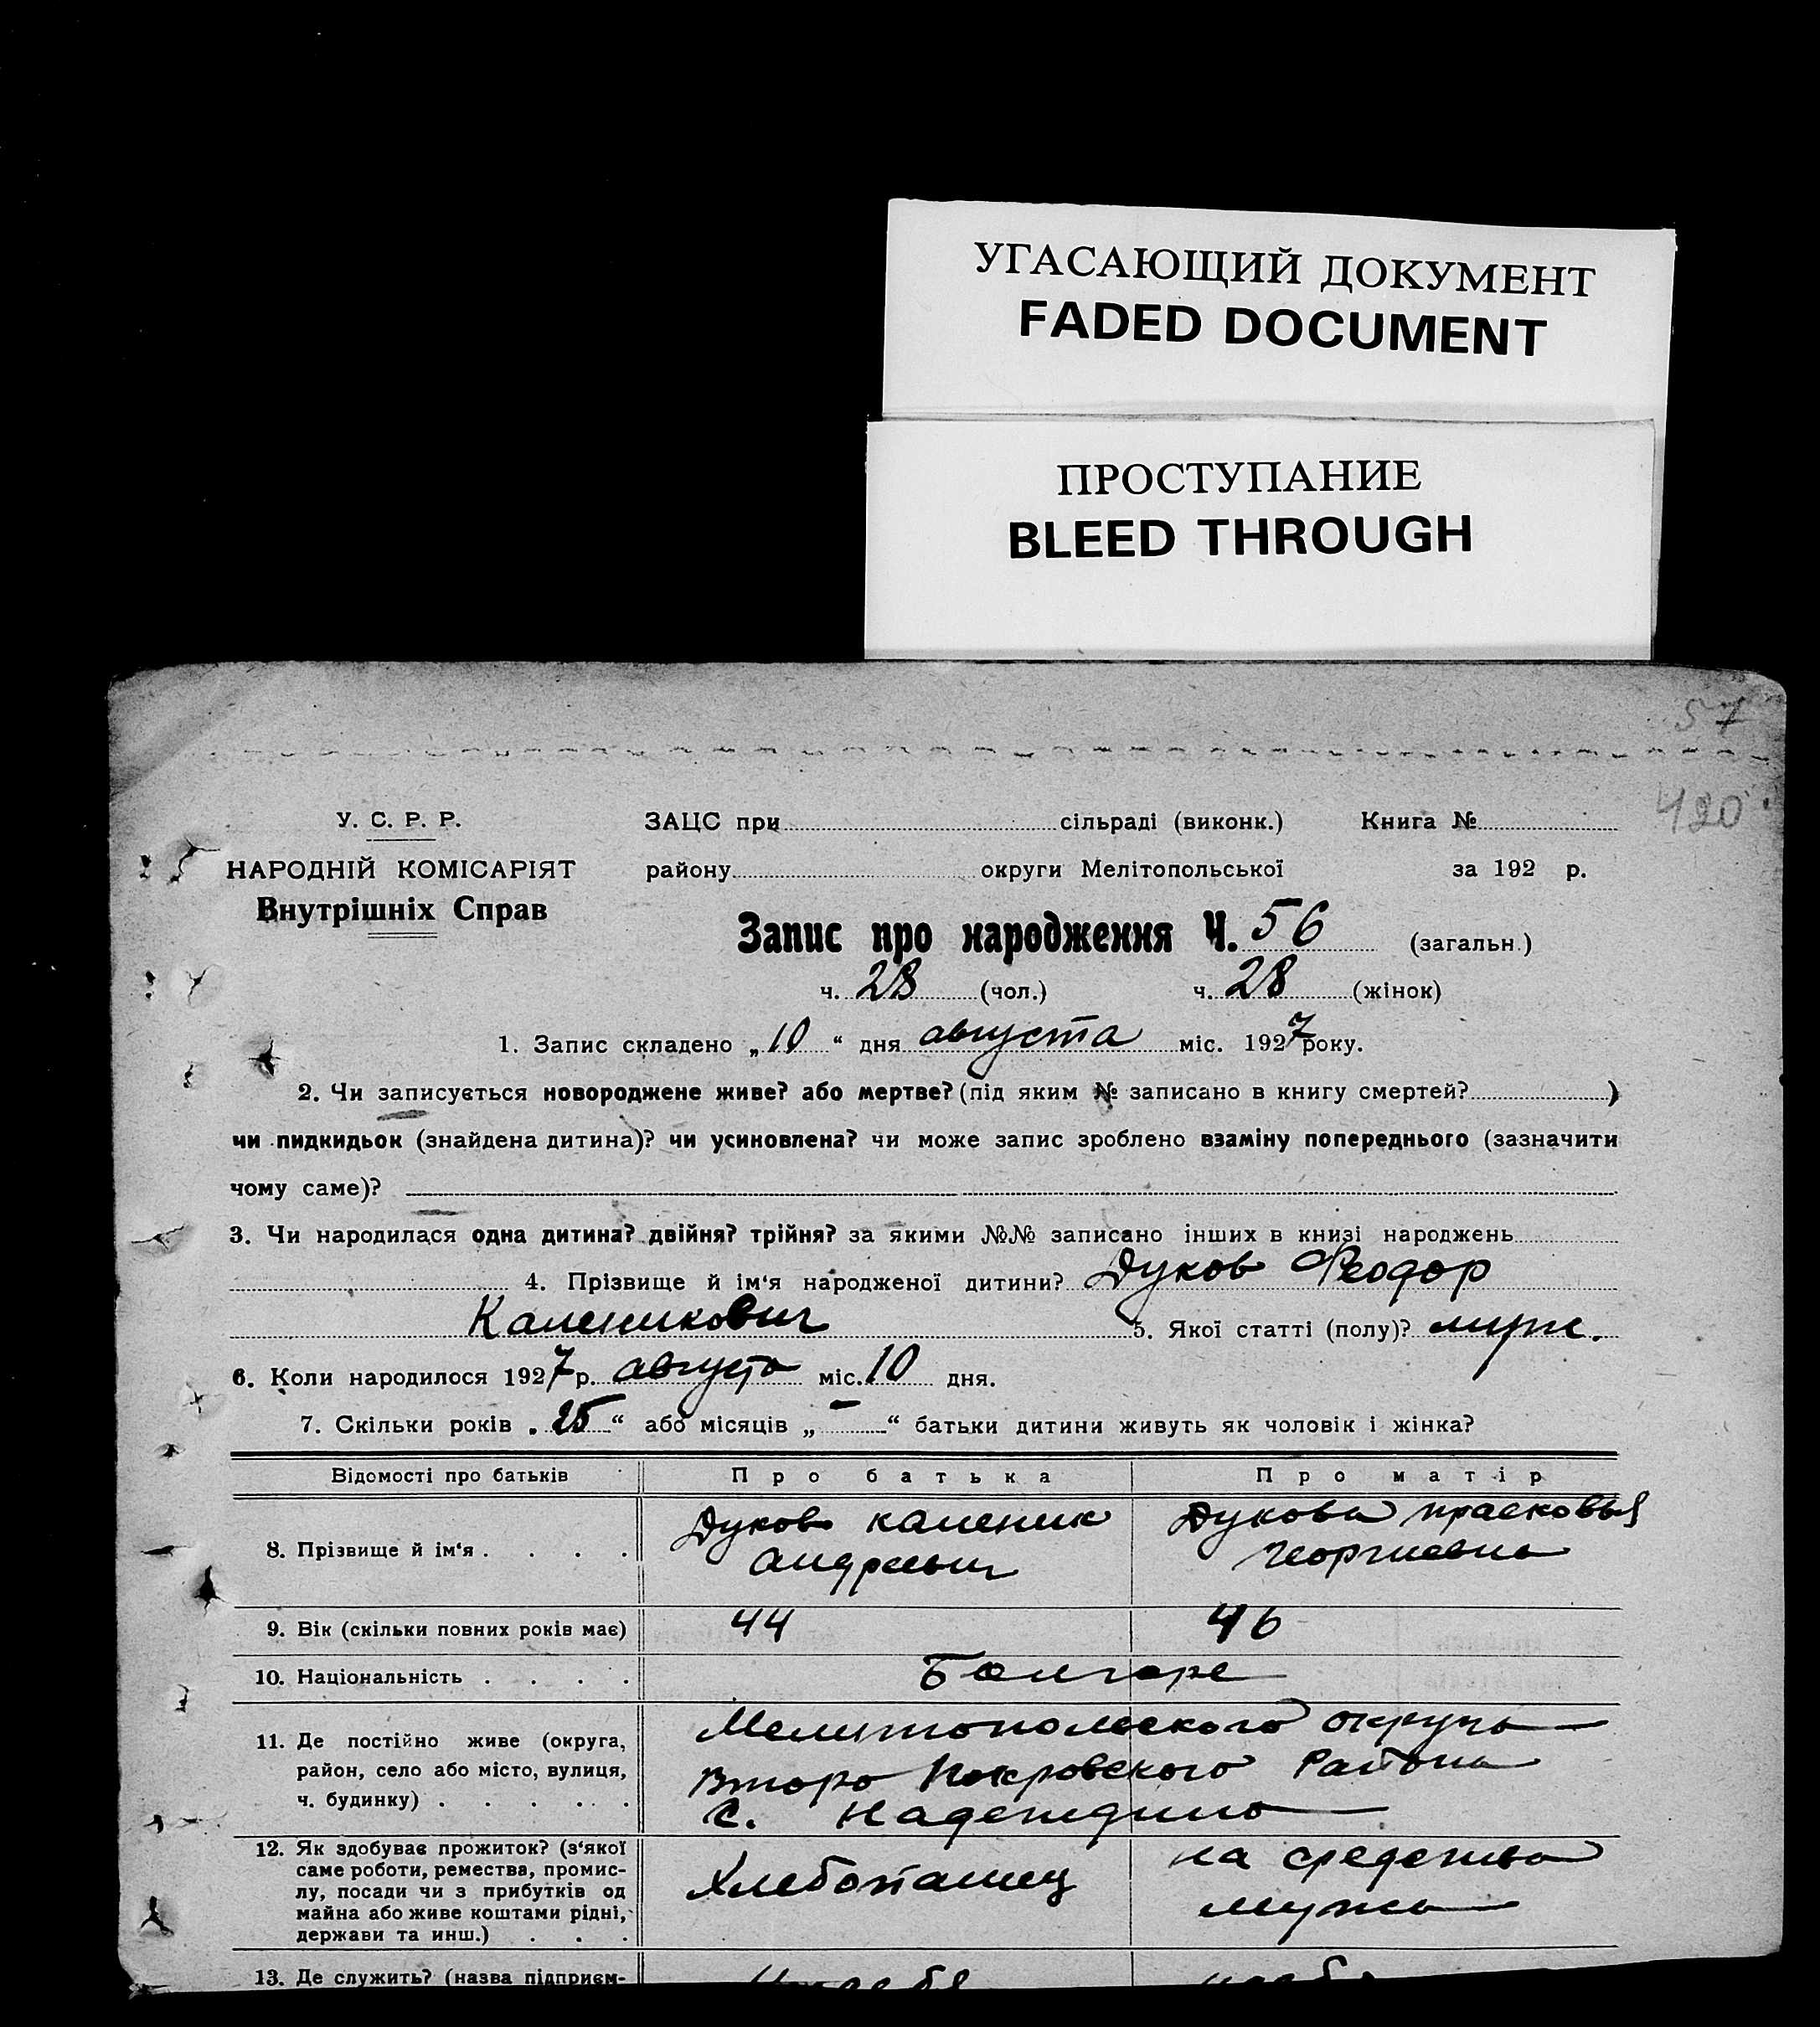 УГАСАЮЩИЙ ДОКУМЕНТ
FADED DOCUMENT
ПРОСТУПАНИЕ
BLEED THROUGH
57
420
У. С. Р. Р.
НАРОДНІЙ КОМІСАРІЯТ
Внутрішніх Справ
ЗАЦС при сільраді (виконк.) Книга №
району округи Мелітопольської за 192 р.
Запис про народження Ч. 56 (загальн.)
ч. 28 (чол.) ч. 28 (жінок)
1. Запис складено „10“ дня августа міс. 1927 року.
2. Чи записується новороджене живе? або мертве? (під яким № записано в книгу смертей? )
чи пидкидьок (знайдена дитина)? чи усиновлена? чи може запис зроблено взаміну попереднього (зазначити
чому саме)?
3. Чи народилася одна дитина? двійня? трійня? за якими №№ записано інших в книзі народжень
4. Прізвище й ім‘я народженої дитини? Дуков Феодор
Каленикович 5. Якої статті (полу)? муж.
6. Коли народилося 1927 р. августа міс. 10 дня.
7. Скільки років „25“ або місяців „–“ батьки дитини живуть як чоловік і жінка?
Відомості про батьків Про батька Про матір
8. Прізвище й ім‘я . . . . Дуков каленик Дукова прасковья
Андреевич Георгиевна
9. Вік (скільки повних років має) 44 46
10. Національність . . . . Болгаре
11. Де постійно живе (округа, Мелитопольского округа
район, село або місто, вулиця, Второ Покровского Района
ч. будинку) . . . . . с. Надеждино
12. Як здобуває прожиток? (з‘якої на средства
саме роботи, ремества, промис- Хлебопашец
лу, посади чи з прибутків од мужа
майна або живе коштами рідні,
держави та инш.) . . .
13. Де служить? (назва підприєм-